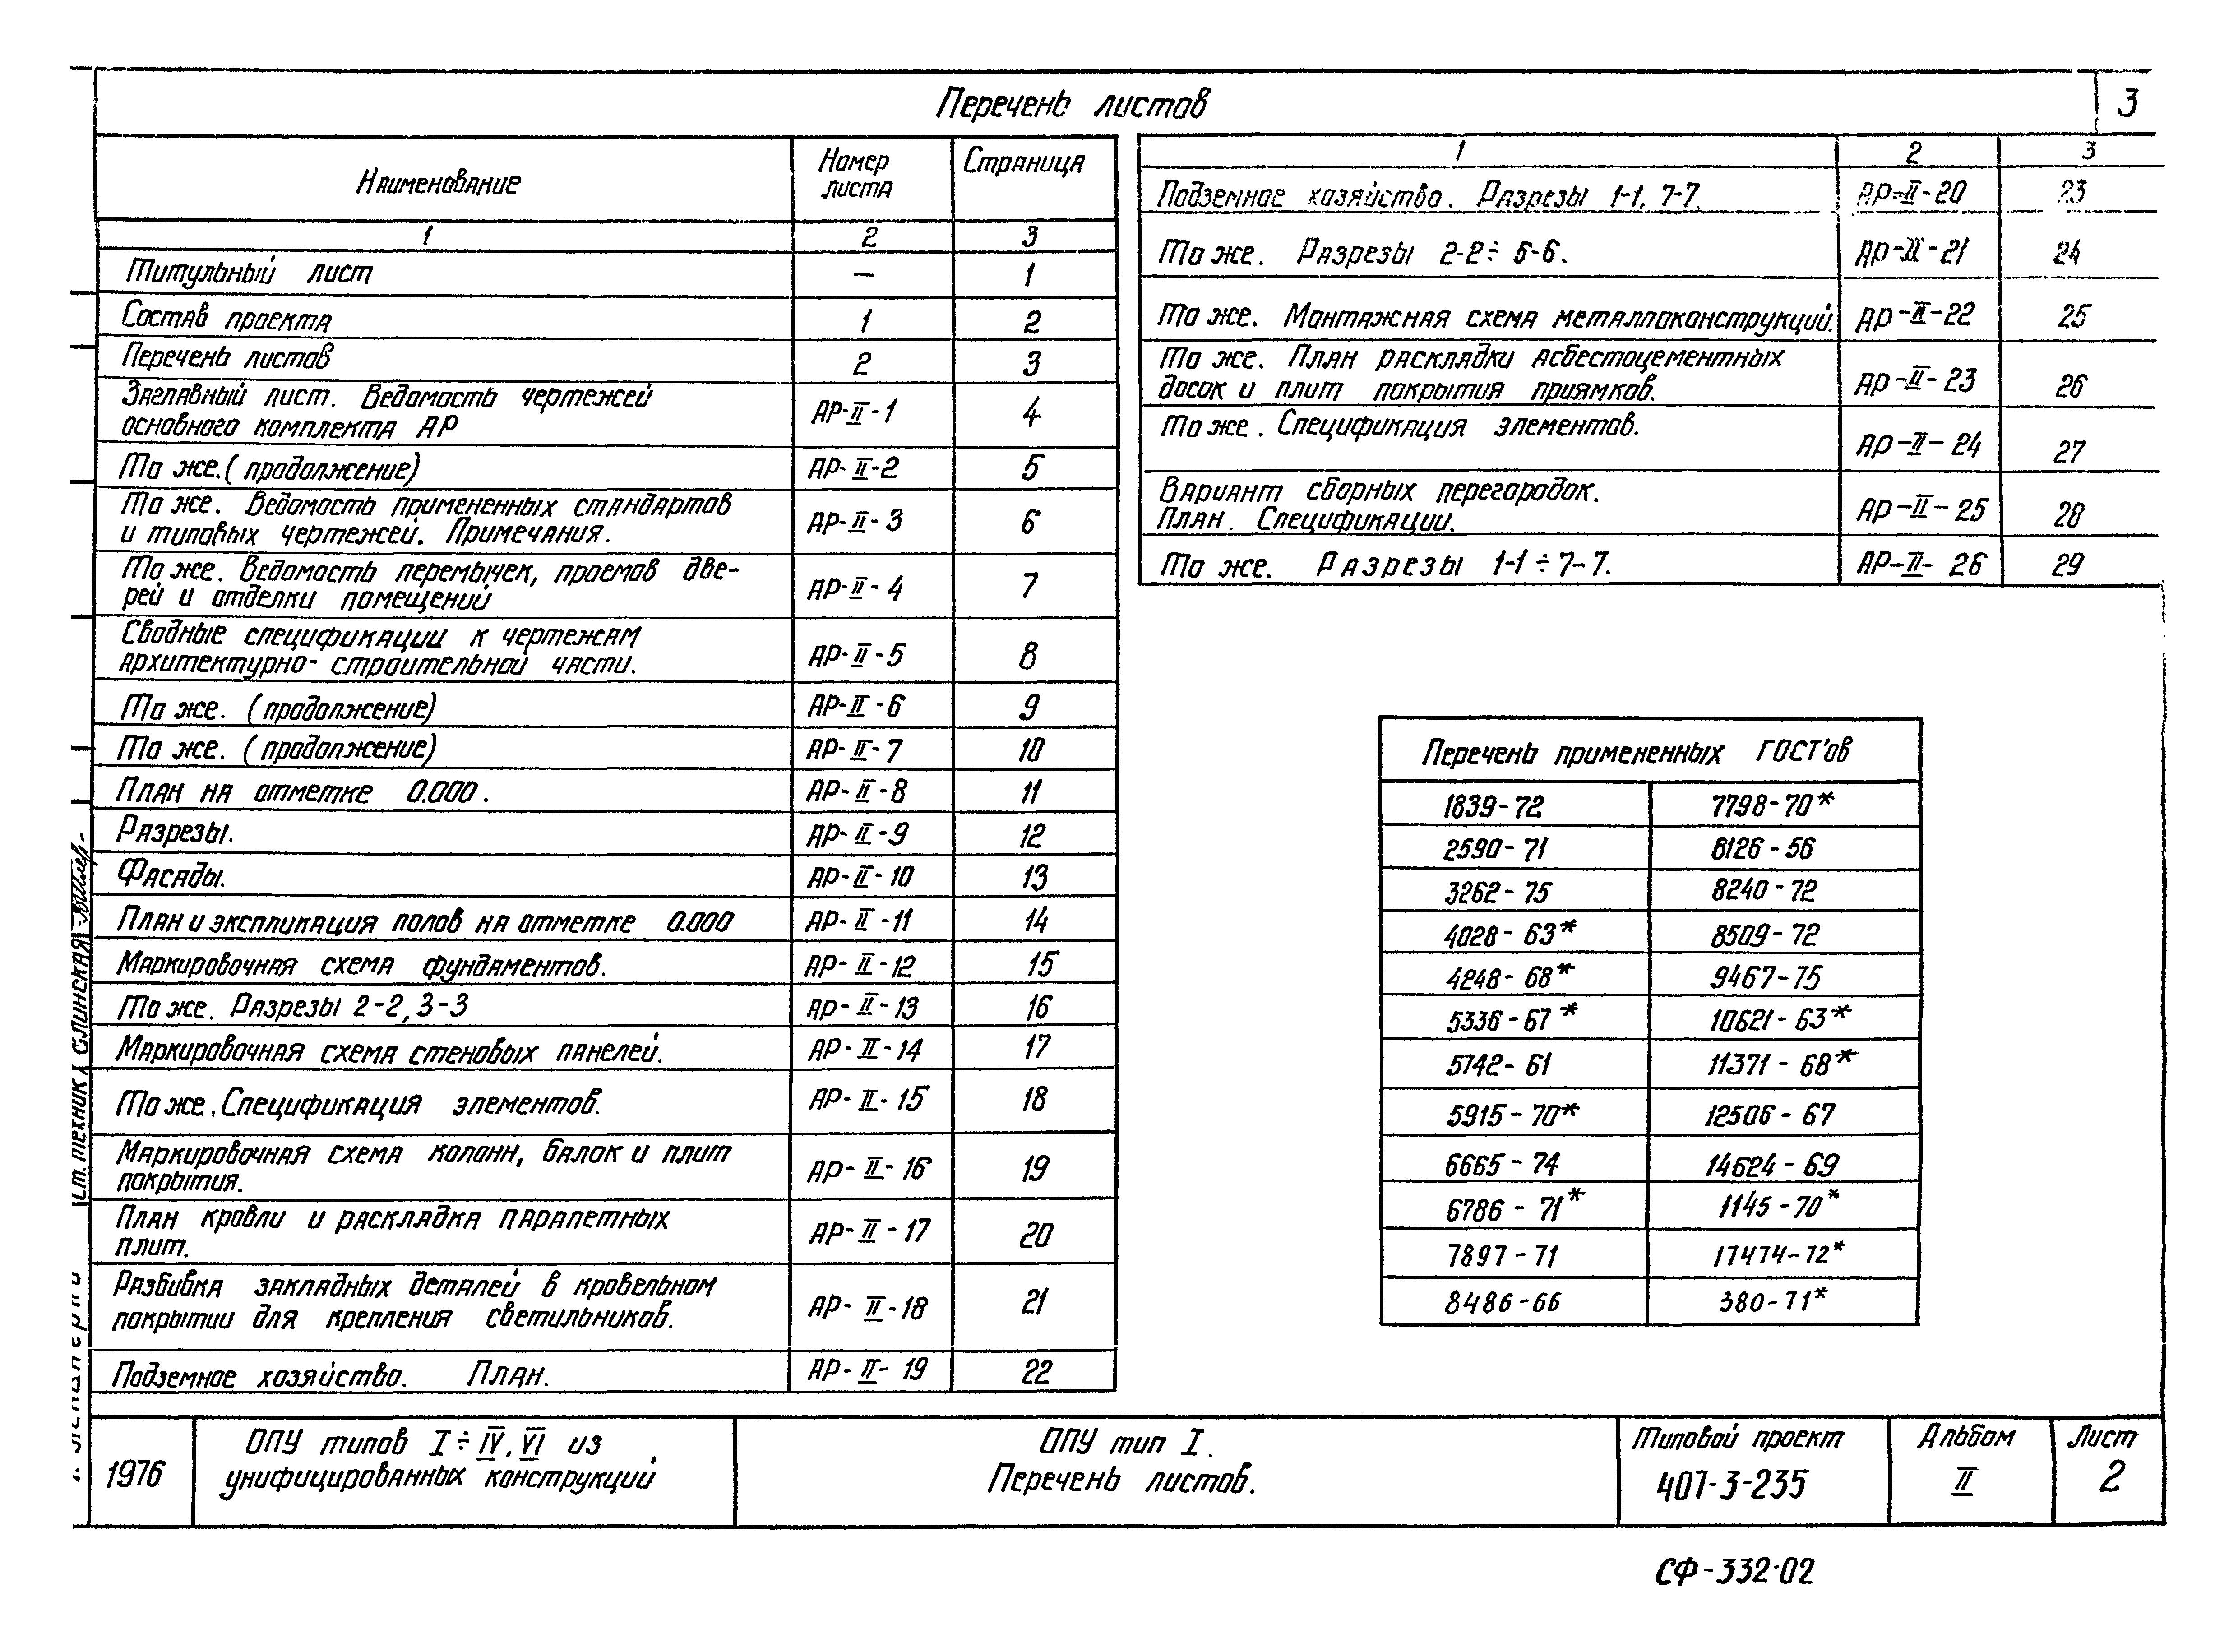 Перечень листов
3
Наименование
Номер листа
Страница
1 2 3
Титульный лист — 1
Состав проекта 1 2
Перечень листов 2 3
Заглавный лист. Ведомость чертежей
основного комплекта АР АР-II-1 4
То же. (продолжение) АР-II-2 5
То же. Ведомость примененных стандартов
и типовых чертежей. Примечания. АР-II-3 6
То же. Ведомость перемычек, проемов две-
рей и отделки помещений АР-II-4 7
Сводные спецификации к чертежам
архитектурно-строительной части. АР-II-5 8
То же. (продолжение) АР-II-6 9
То же. (продолжение) АР-II-7 10
План на отметке 0.000. АР-II-8 11
Разрезы. АР-II-9 12
Фасады. АР-II-10 13
План и экспликация полов на отметке 0.000 АР-II-11 14
Маркировочная схема фундаментов. АР-II-12 15
То же. Разрезы 2-2, 3-3 АР-II-13 16
Маркировочная схема стеновых панелей. АР-II-14 17
То же. Спецификация элементов. АР-II-15 18
Маркировочная схема колонн, балок и плит
покрытия. АР-II-16 19
План кровли и раскладка парапетных
плит. АР-II-17 20
Разбивка закладных деталей в кровельном
покрытии для крепления светильников. АР-II-18 21
Подземное хозяйство. План. АР-II-19 22
1 2 3
Подземное хозяйство. Разрезы 1-1, 7-7. АР-II-20 23
То же. Разрезы 2-2÷6-6. АР-II-21 24
То же. Монтажная схема металлоконструкций. АР-II-22 25
То же. План раскладки асбестоцементных
досок и плит покрытия приямков. АР-II-23 26
То же. Спецификация элементов. АР-II-24 27
Вариант сборных перегородок.
План. Спецификации. АР-II-25 28
То же. Разрезы 1-1÷7-7. АР-II-26 29
Перечень примененных ГОСТ'ов
1839-72 7798-70*
2590-71 8126-56
3262-75 8240-72
4028-63* 8509-72
4248-68* 9467-75
5336-67* 10621-63*
5742-61 11371-68*
5915-70* 12506-67
6665-74 14624-69
6786-71* 1145-70*
7897-71 17474-72*
8486-66 380-71*
ст. техник Слинская
1976
ОПУ типов I÷IV, VI из
унифицированных конструкций
ОПУ тип I.
Перечень листов.
Типовой проект
407-3-235
Альбом
II
Лист
2
СФ-332-02